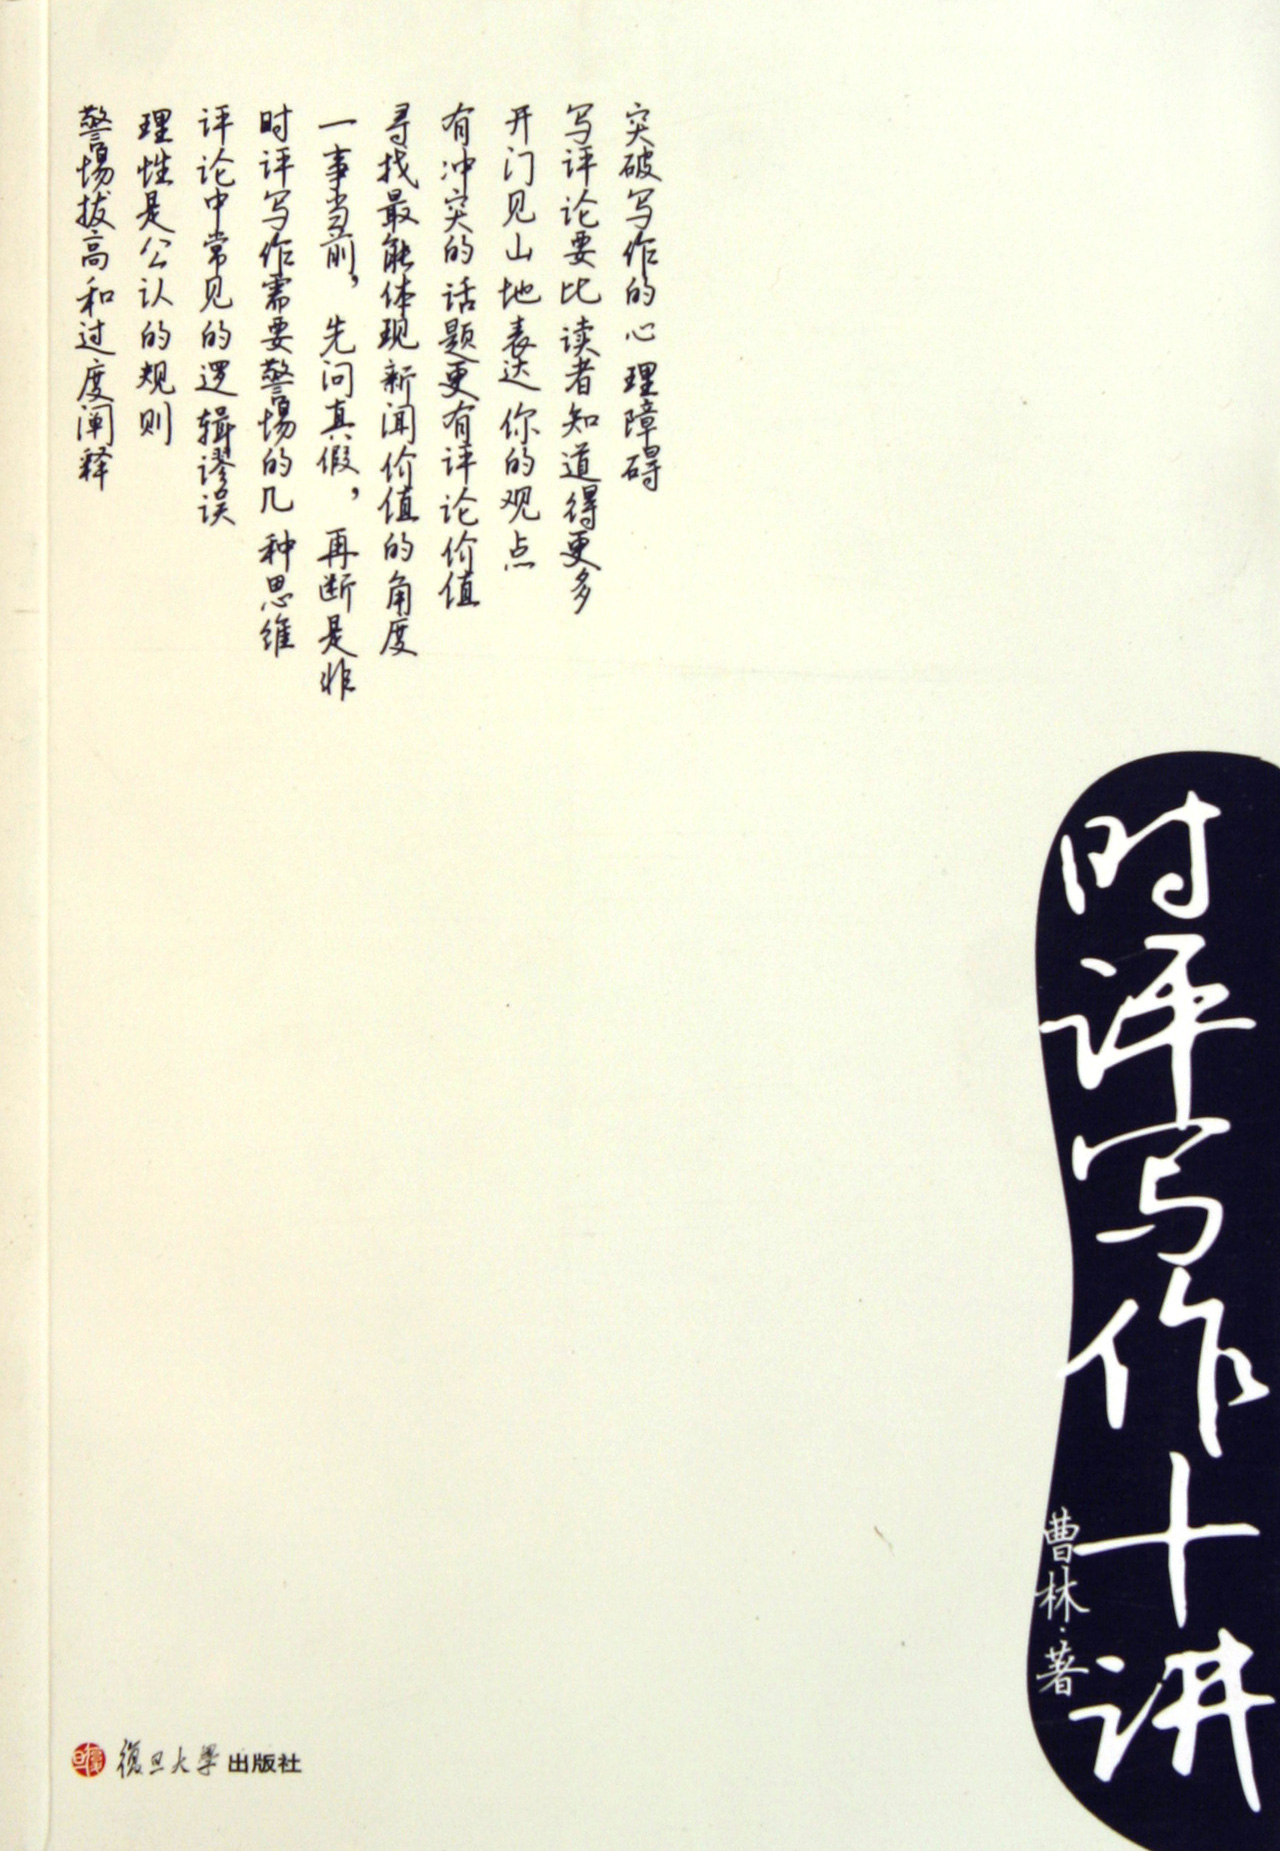 突破写作的心理障碍
写评论要比读者知道得更多
开门见山地表达你的观点
有冲突的话题更有评论价值
寻找最能体现新闻价值的角度
一事当前，先问真假，再断是非
时评写作需要警惕的几种思维
评论中常见的逻辑谬误
理性是公认的规则
警惕拔高和过度阐释
时评写作十讲
曹林·著
復旦大學出版社